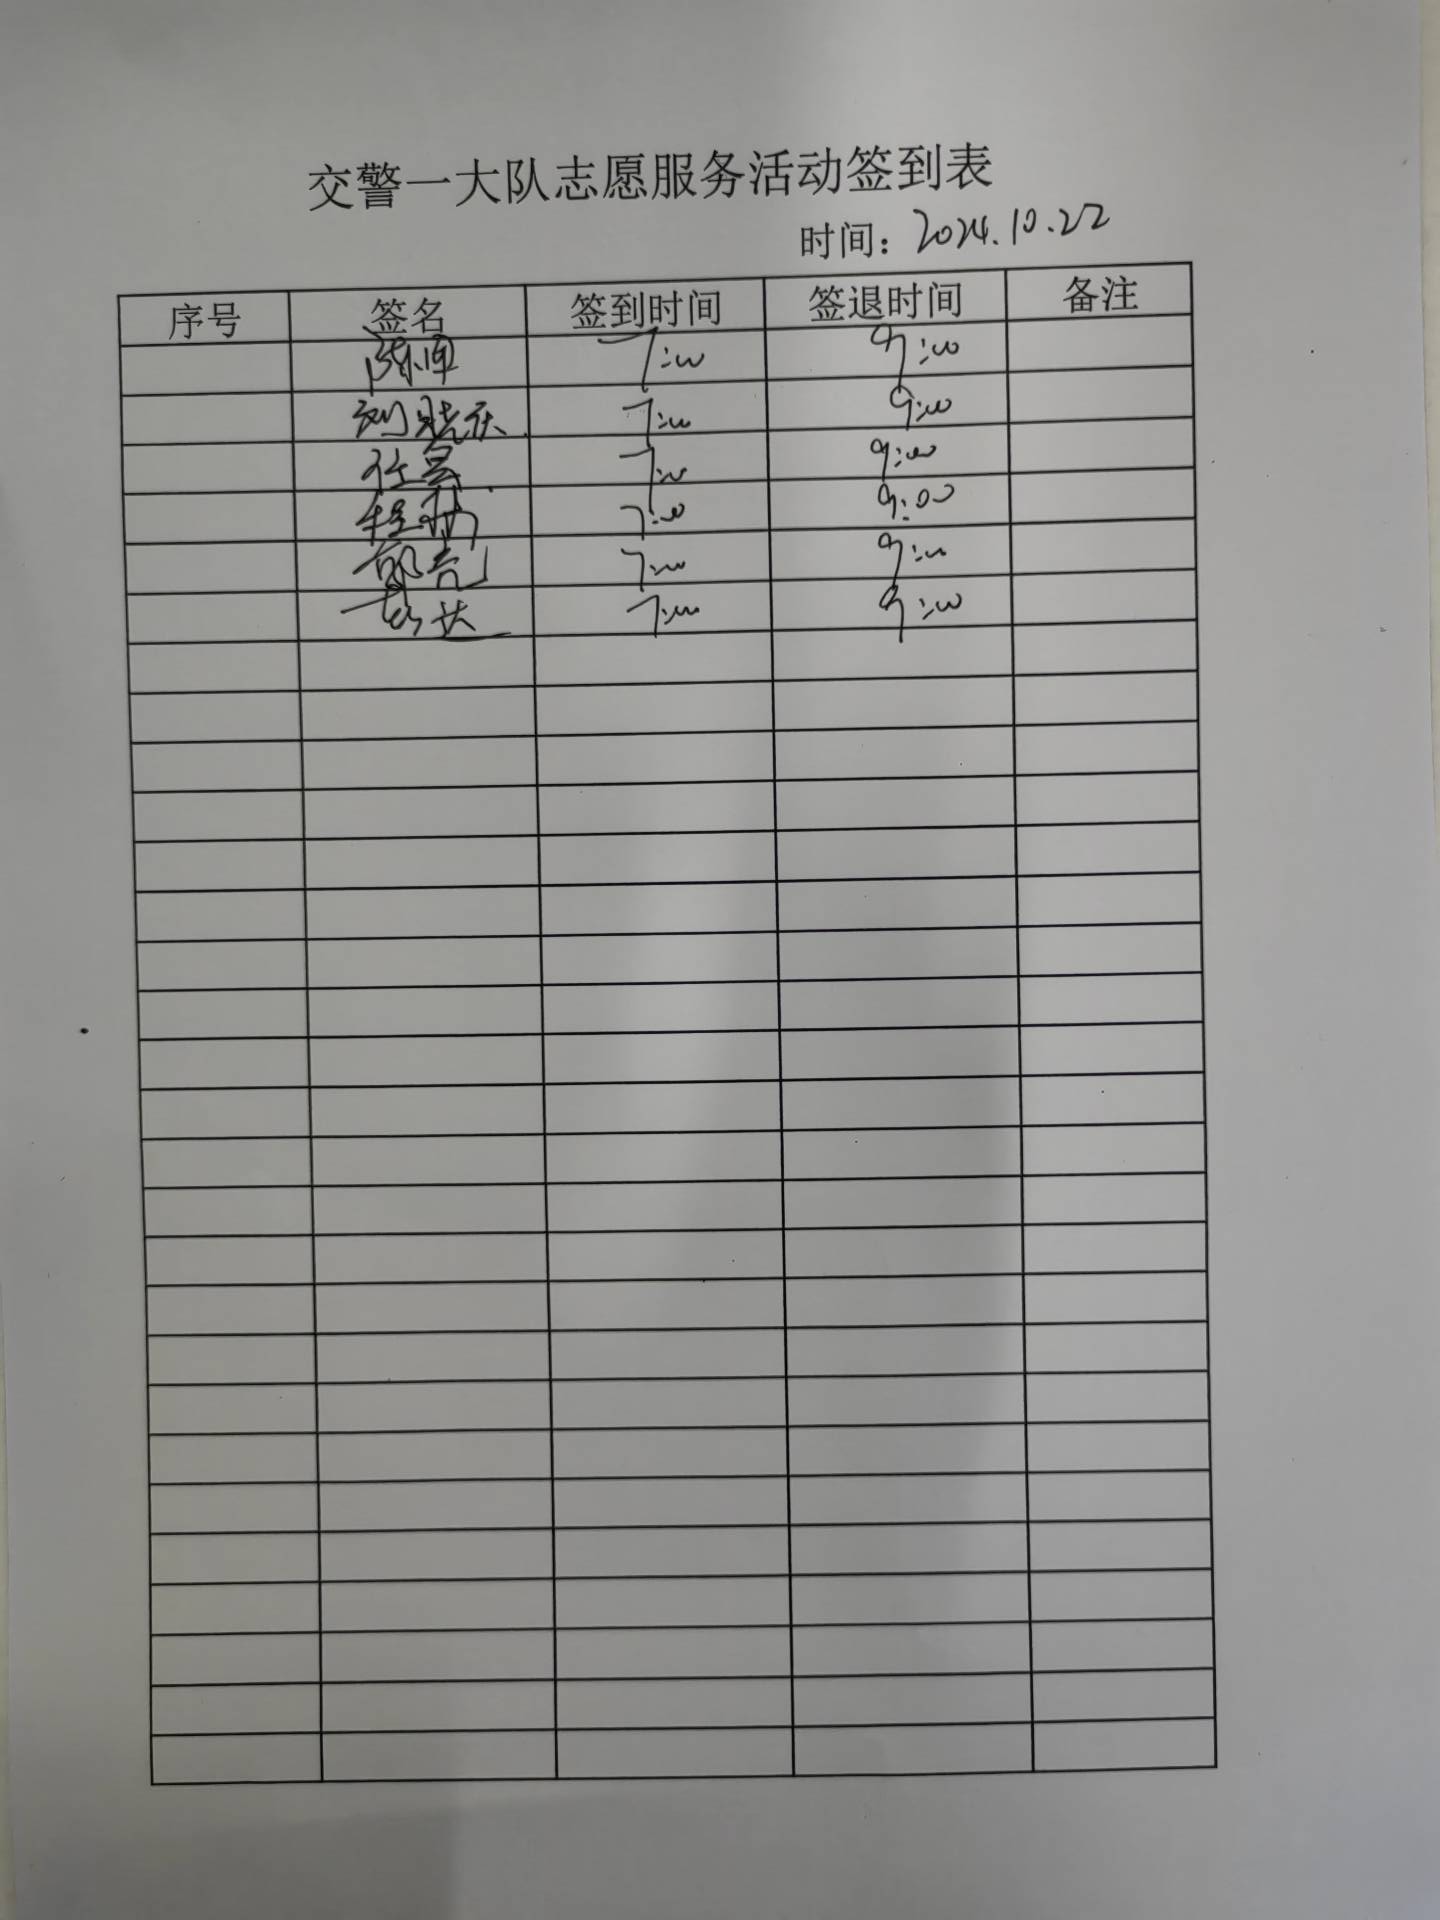 交警一大队志愿服务活动签到表
时间：2024.10.22
序号 签名 签到时间 签退时间 备注
7:00 9:00
刘 7:00 9:00
7:00 9:00
7:00 9:00
郭亮 7:00 9:00
7:00 9:00